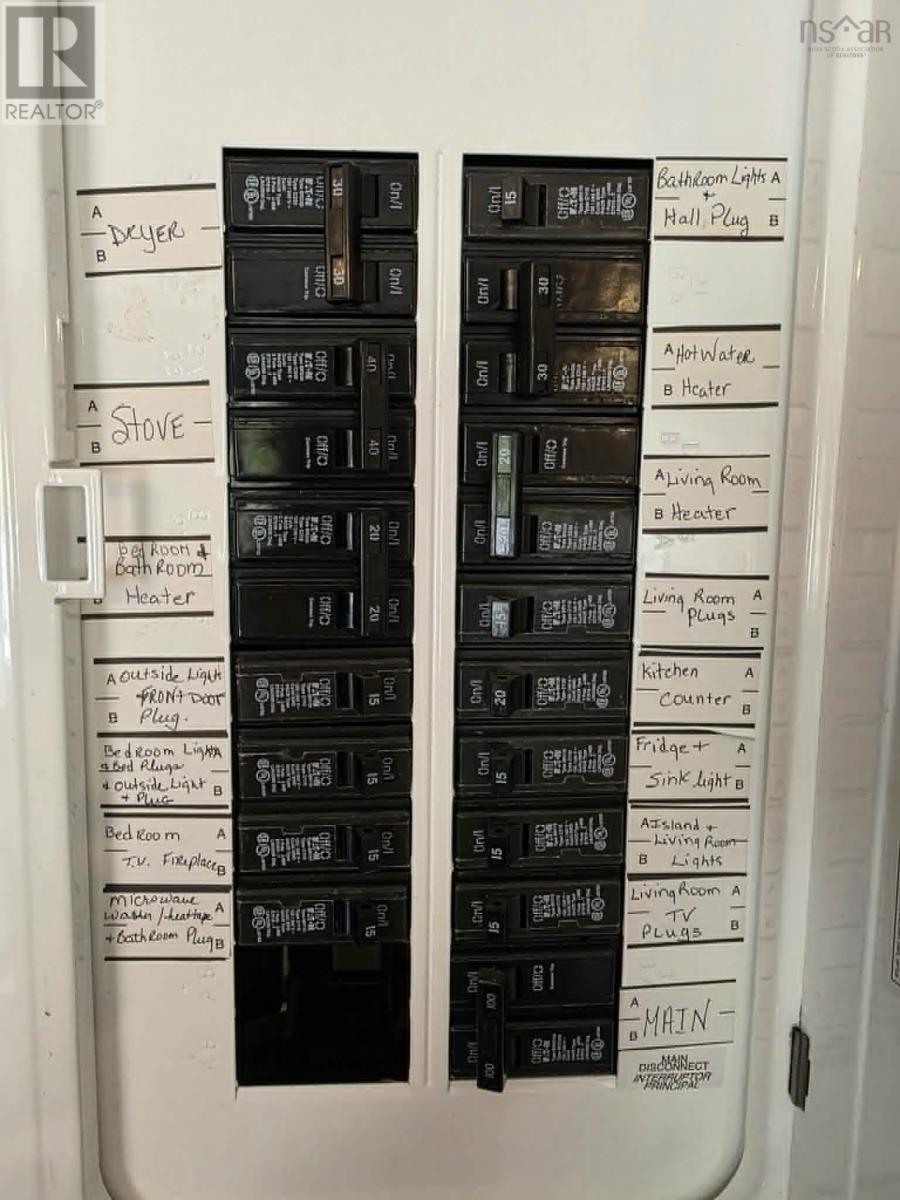 R
REALTOR®
nsaar
NOVA SCOTIA ASSOCIATION
OF REALTORS®
A
DRYER
B
A
STOVE
B
bedROOM &
BathROOM
Heater
B
A Outside Light
+ FRONT DOOR
B Plug.
BedRoom Lights A
& Bed Plugs
+ outside Light B
+ PLUG
BedRoom A
T.V. Fireplace B
Microwave A
Washer/heattape
+ BathRoom Plug B
On/I
30
30
On/I
Off/O
Common Trip
Off/O
40
On/I
Off/O
40
On/I
Common Trip
Off/O
20
On/I
Off/O
20
On/I
Common Trip
Off/O
15
On/I
Off/O
15
On/I
Off/O
15
On/I
Off/O
15
On/I
On/I
15
Off/O
On/I
30
On/I
30
On/I
20
Off/O
Common Trip
On/I
20
Off/O
On/I
15
Off/O
On/I
20
Off/O
On/I
15
Off/O
On/I
15
Off/O
On/I
15
Off/O
On/I
100
Off/O
Common Trip
On/I
100
Off/O
BathRoom Lights A
+
Hall Plug B
A Hot Water
B Heater
A Living Room
B Heater
Living Room A
Plugs
B
Kitchen A
Counter B
Fridge + A
Sink light B
A Island +
Living Room
B Lights
Living Room A
TV
Plugs B
A
MAIN
B
MAIN
DISCONNECT
INTERRUPTOR
PRINCIPAL